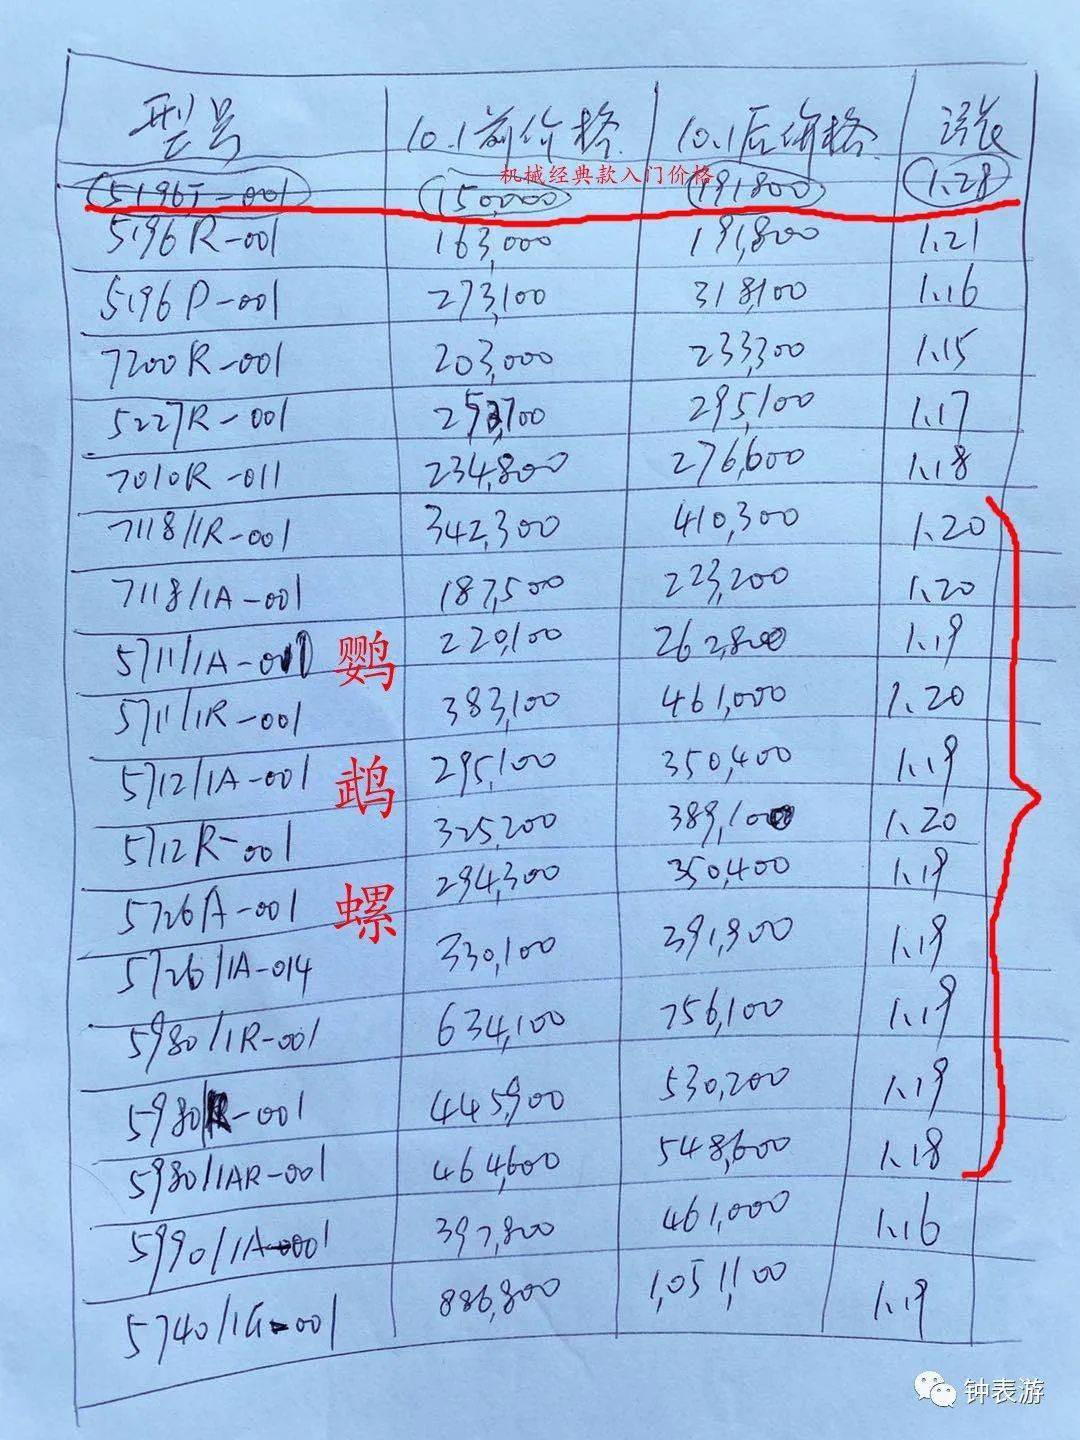 型号 10.1前价格 10.1后价格 涨
机械经典款入门价格
5196J-001 150,000 191,800 1.28
5196R-001 163,000 191,800 1.21
5196P-001 273,100 318,100 1.16
7200R-001 203,000 233,300 1.15
5227R-001 295,100 1.17
7010R-011 234,800 276,600 1.18
7118/1R-001 342,300 410,300 1.20
7118/1A-001 187,500 223,200 1.20
5711/1A-011 鹦 220,100 262,800 1.19
5711/1R-001 383,100 461,000 1.20
5712/1A-001 鹉 295,100 350,400 1.19
5712R-001 325,200 389,100 1.20
5726A-001 螺 294,300 350,400 1.19
5726/1A-014 330,100 391,900 1.19
5980/1R-001 634,100 756,100 1.19
5980R-001 445,900 530,200 1.19
5980/1AR-001 464,600 548,600 1.18
5990/1A-001 397,800 461,000 1.16
5740/1G-001 886,800 1,051,100 1.19
钟表游